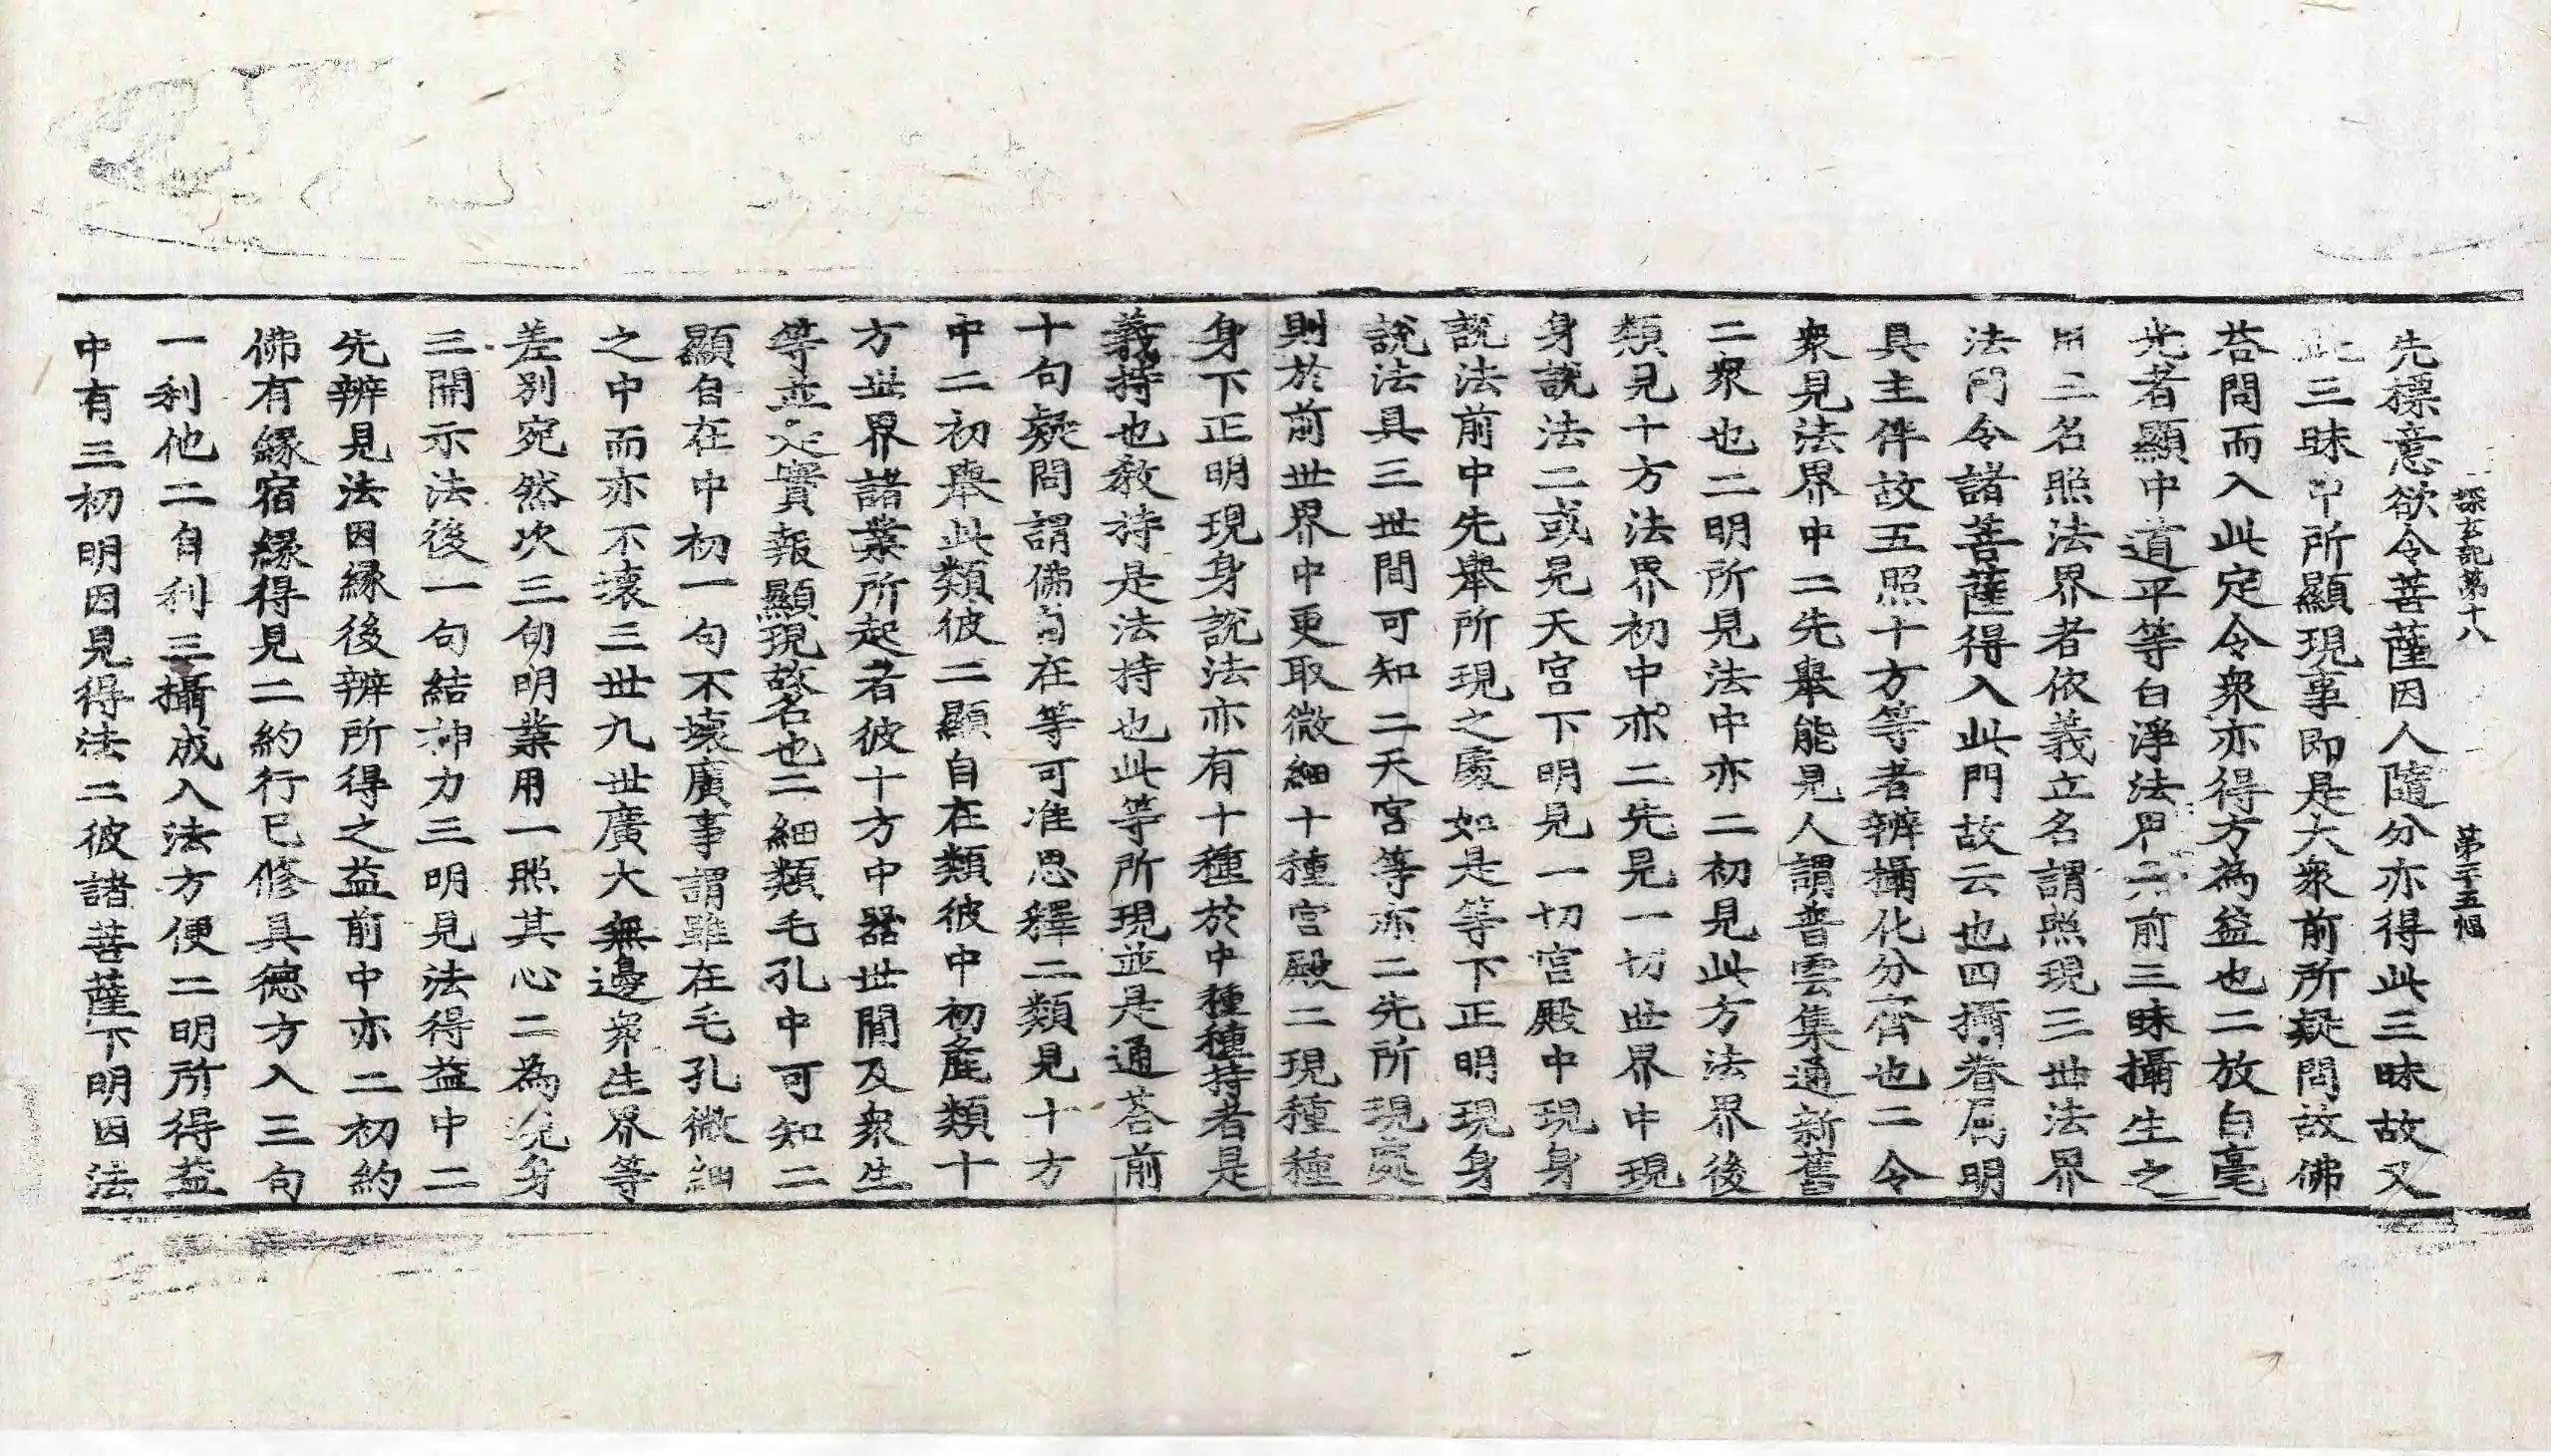 探玄記第十八　第二十五幅
先標意欲令菩薩因人隨分亦得此三昧故又
此三昧中所顯現事即是大衆前所疑問故佛
荅問而入此定令衆亦得方為益也二放白毫
光者顯中道平等白淨法界六前三昧攝生之
用三名照法界者依義立名謂照現三世法界
法門令諸菩薩得入此門故云也四攝眷屬明
具主伴故五照十方等者辨攝化分齊也二令
衆見法界中二先舉能見人謂普雲集通新舊
二衆也二明所見法中亦二初見此方法界後
類見十方法界初中亦二先見一切世界中現
身說法二或見天宫下明見一切宫殿中現身
說法前中先舉所現之處如是等下正明現身
說法具三世間可知二天宫等亦二先所現處
則於前世界中更取微細十種宫殿二現種種
身下正明現身說法亦有十種於中種種持者是
義持也教持是法持也此等所現並是通荅前
十句疑問謂佛自在等可准思釋二類見十方
中二初舉此類彼二顯自在類彼中初麁類十
方世界諸業所起者彼十方中器世間及衆生
等並是實報顯現故名也二細類毛孔中可知二
顯自在中初一句不壞廣事謂雖在毛孔微細
之中而亦不壞三世九世廣大無邊衆生界等
差別宛然次三句明業用一照其心二為現身
三開示法後一句結神力三明見法得益中二
先辨見法因緣後辨所得之益前中亦二初約
佛有緣宿緣得見二約行已修具德方入三句
一利他二自利三攝成入法方便二明所得益
中有三初明因見得法二彼諸菩薩下明因法